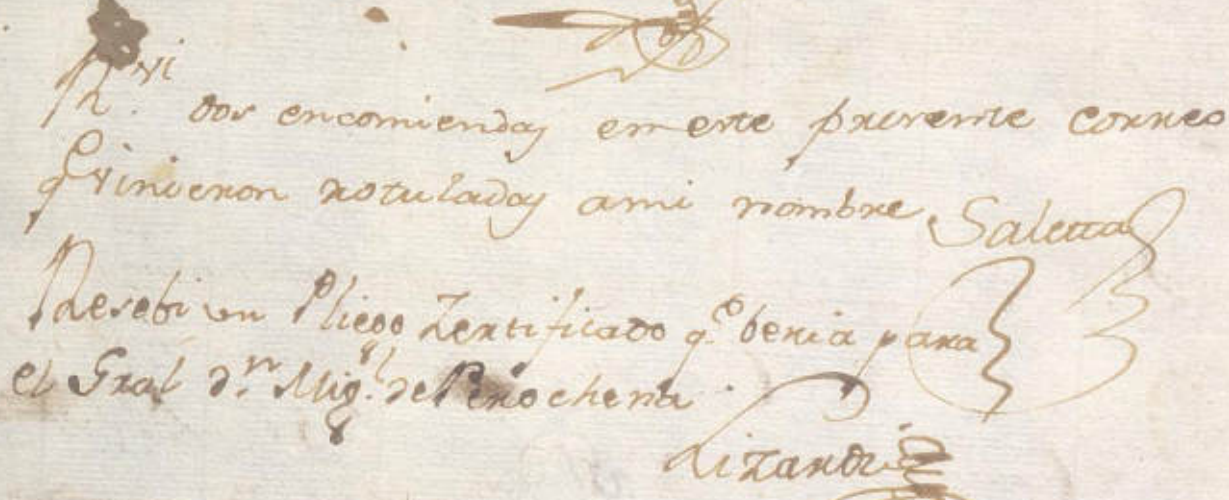 R.vi dos encomiendas en este presente correo
q.e vinieron rotuladas a mi nombre Saletta
Resebi un Pliego Zertificado q.e benia para
el Gral d.n Mig.l de Perochena
Lizardi